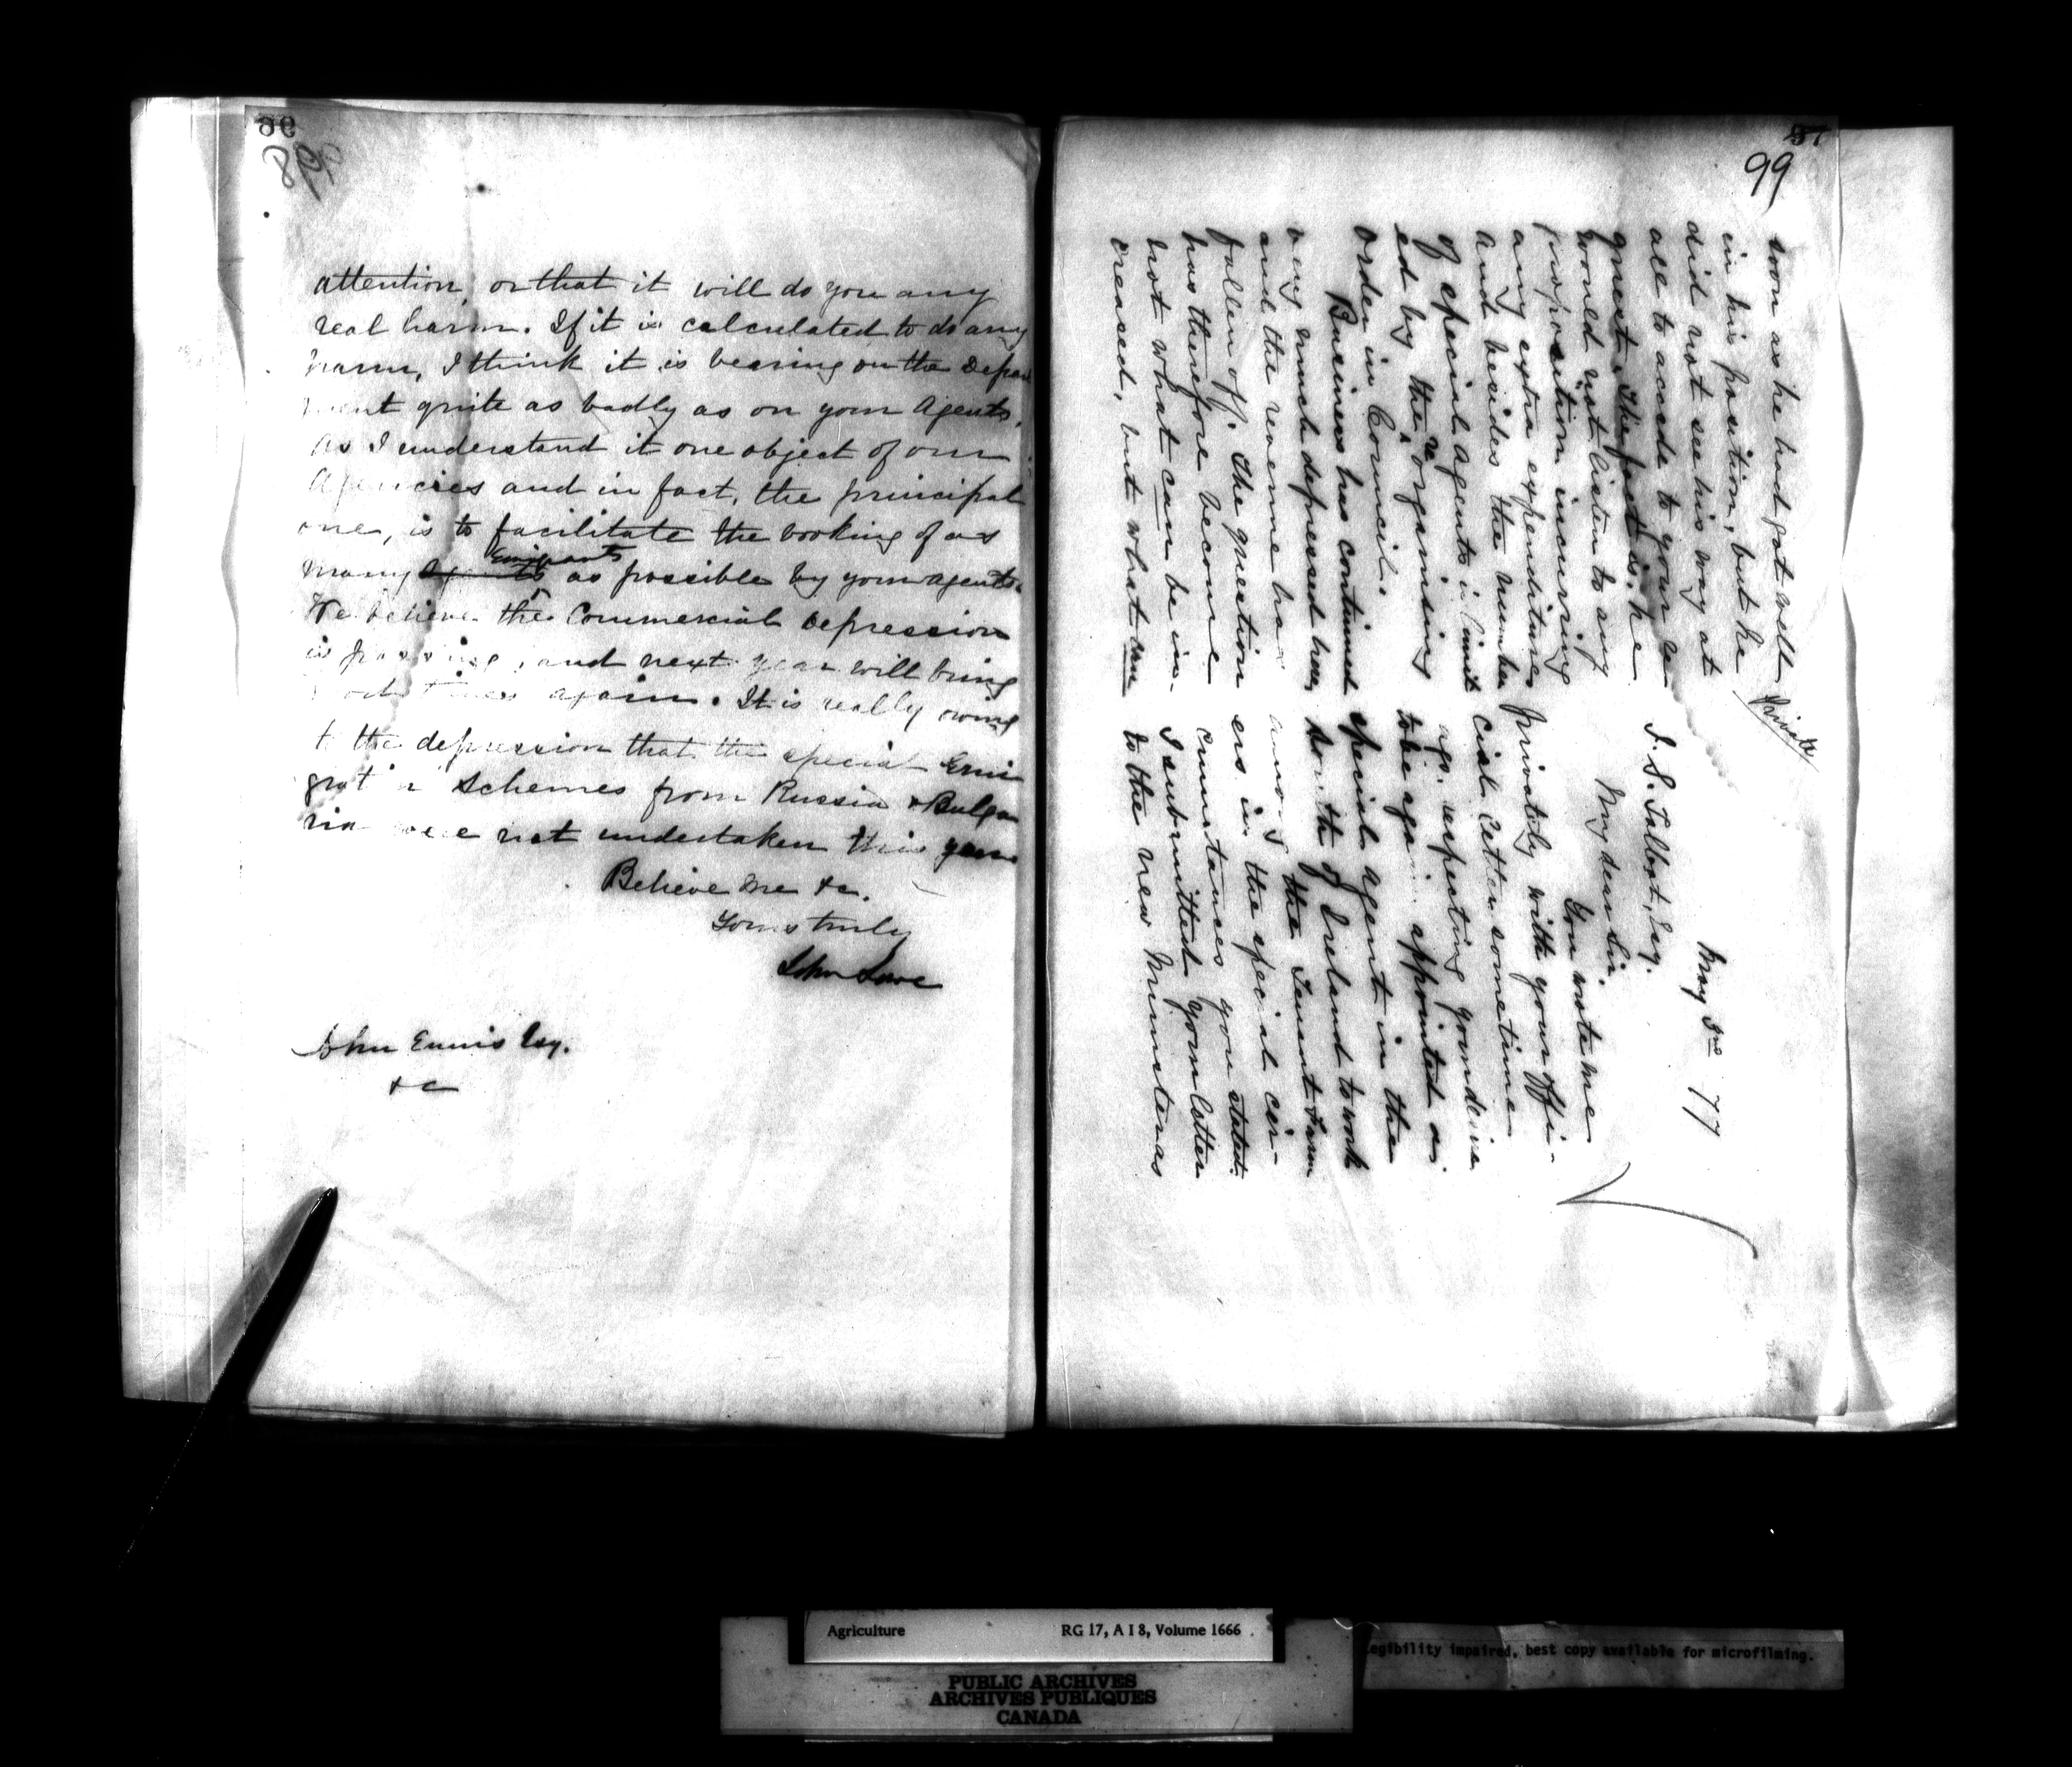 96
98
attention, or that it will do you any
real harm. If it is calculated to do any
harm, I think it is bearing on the Depar
ment quite as badly as on your Agents.
As I understand it one object of our
Agencies and in fact, the principal
one, is to facilitate the booking of as
Emigrants
many as possible by your agents.
We believe the Commercial depression
is passing, and next year will bring
times again. It is really owing
to the depression that the special Emi
grat n schemes from Russia & Bulga
ria were not undertaken this year
Believe me &c.
Yours truly
John Lowe
John Ennis Esq.
&c
57
99
Private
May 3rd 77
J. S. Talbot, Esq.
My dear Sir,
You wrote me
privately with your offi-
cial letter sometime
ago, respecting your desire
to be again appointed as
special agent in the
South of Ireland to work
among the Tenant Farm
ers in the special cir-
cumstances you stated.
I submitted your letter
to the new Minister as
soon as he had got well
in his position, but he
did not see his way at
all to accede to your re
quest. The fact is, he
would not listen to any
proposition incurring
any extra expenditure
and besides the number
of special agents is limit
ed by the reorganising
order in Council.
Business has continued
very much depressed here,
and the revenue has
fallen off. The question
has therefore become
not what can be in-
creased, but what can
Agriculture RG 17, A I 8, Volume 1666
legibility impaired, best copy available for microfilming.
PUBLIC ARCHIVES
ARCHIVES PUBLIQUES
CANADA